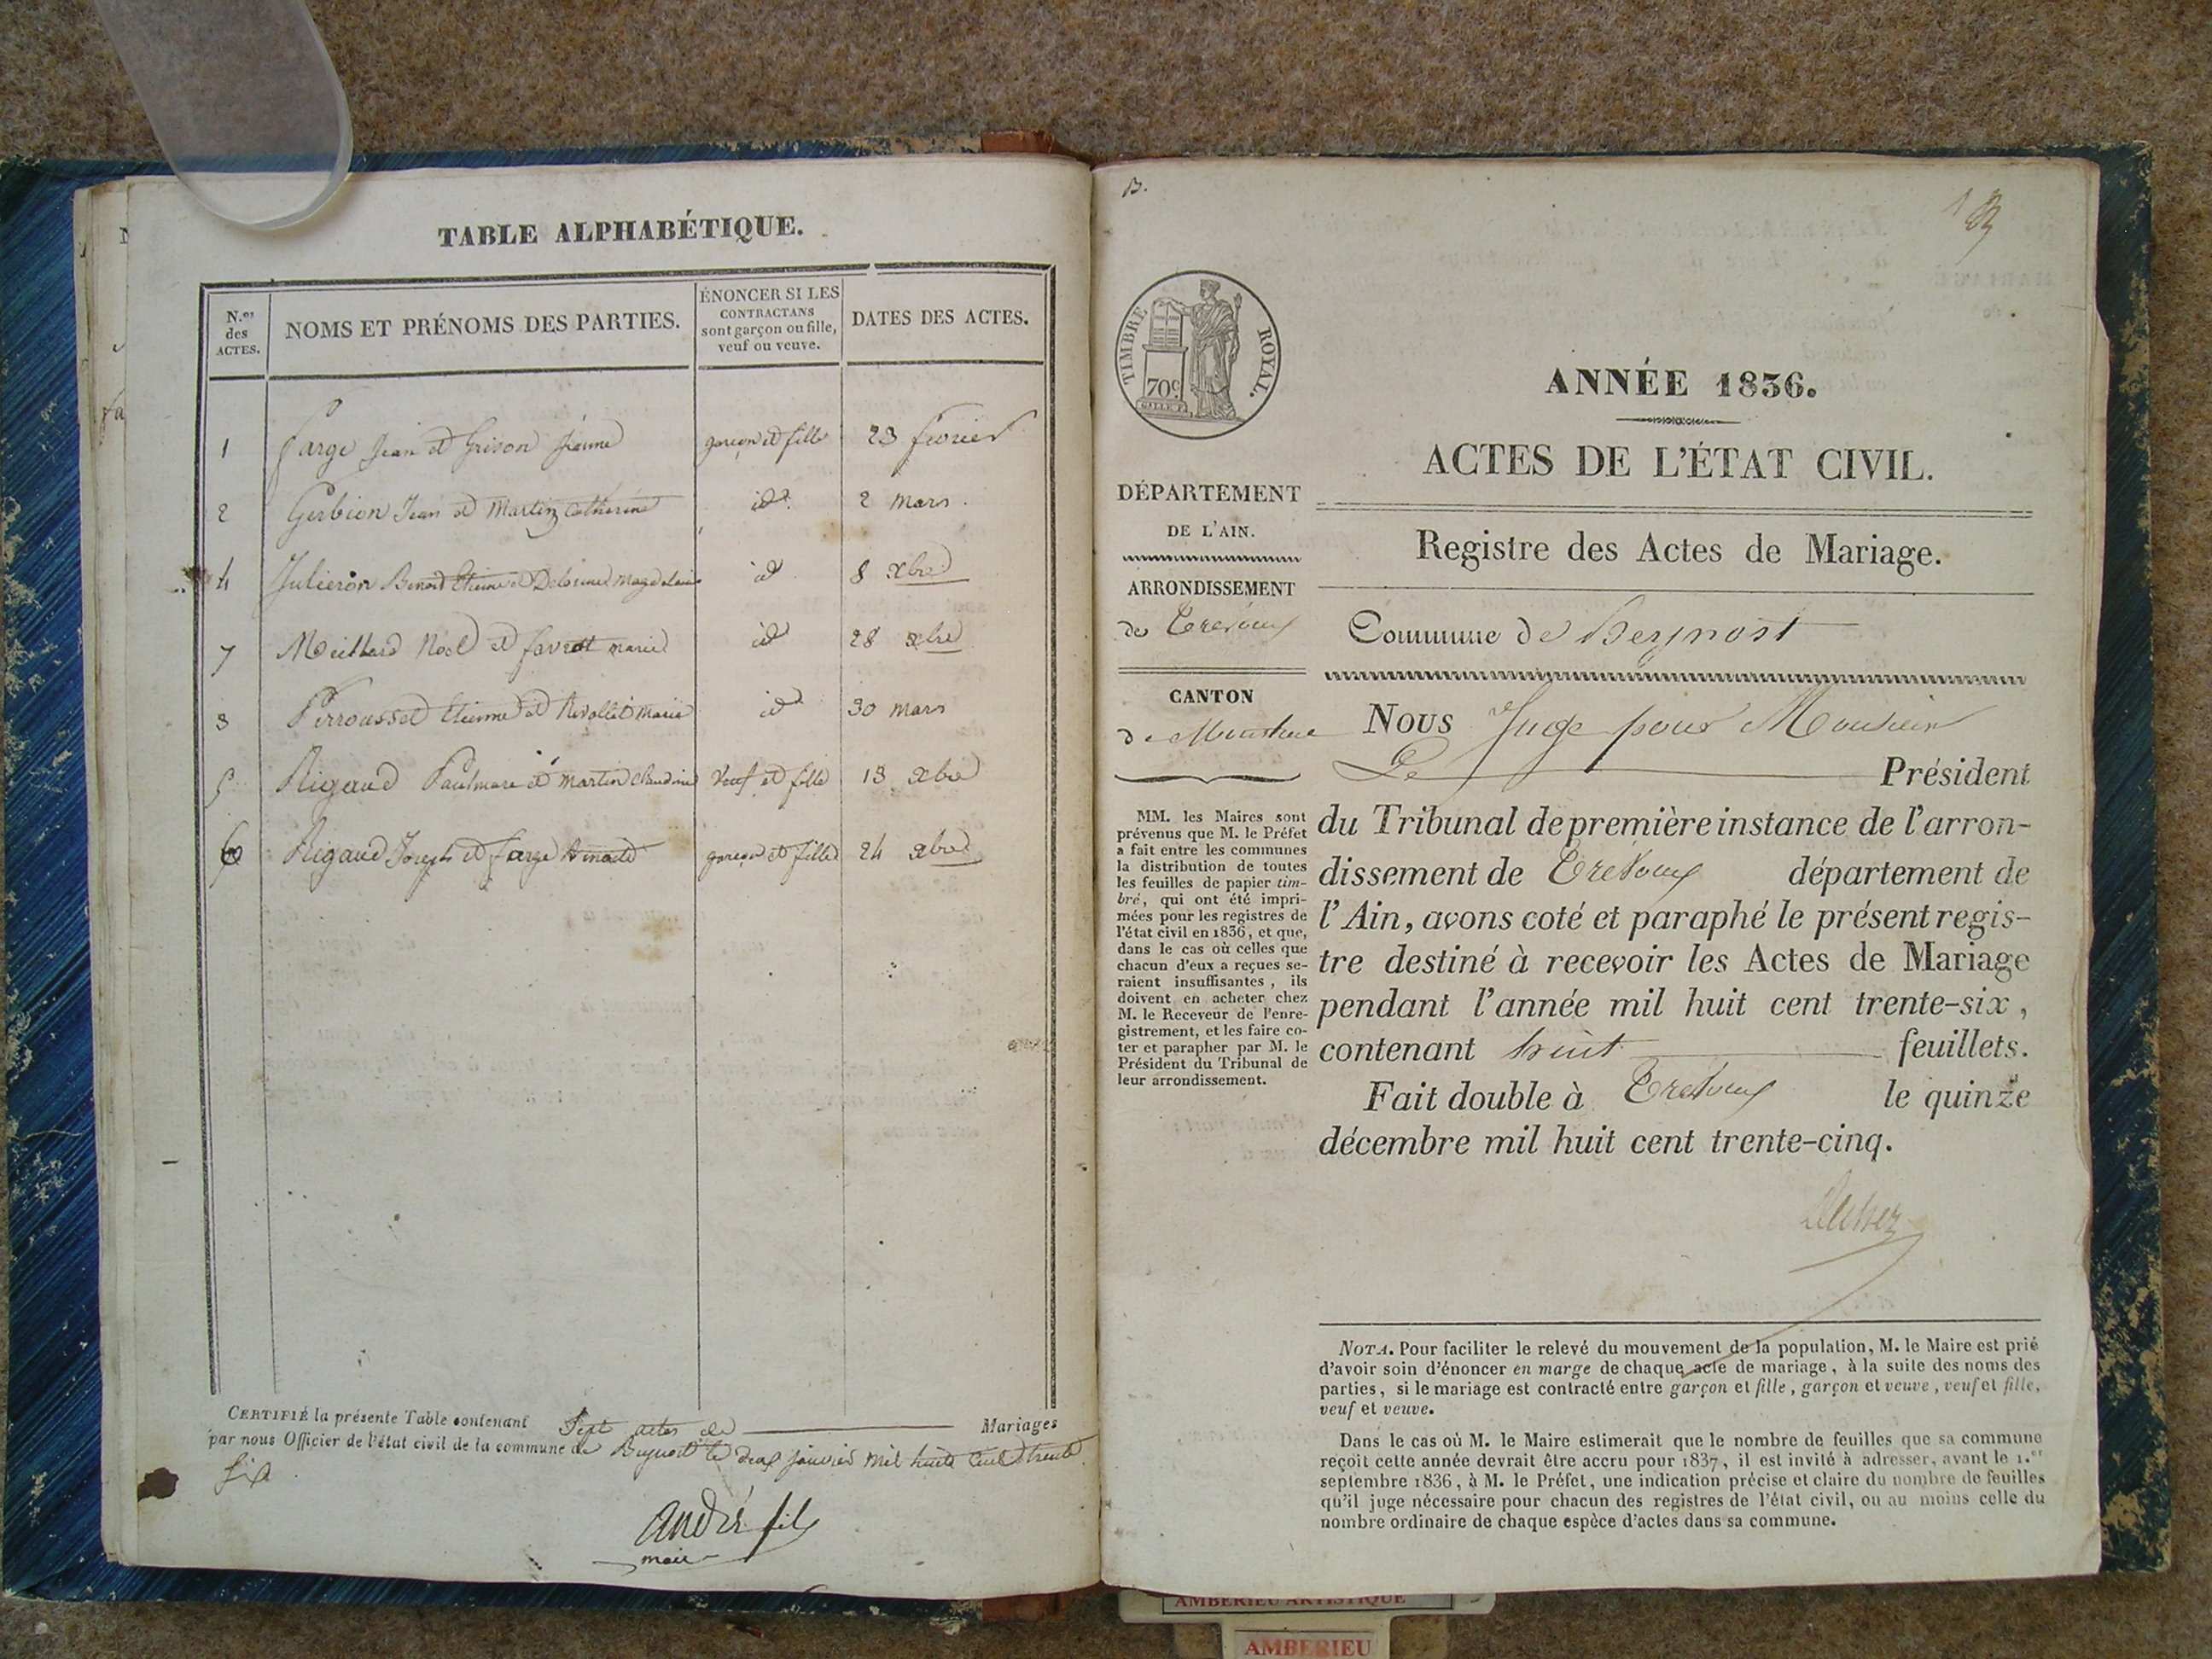 TABLE ALPHABÉTIQUE.
N.os des ACTES.
NOMS ET PRÉNOMS DES PARTIES.
ÉNONCER SI LES
CONTRACTANS
sont garçon ou fille,
veuf ou veuve.
DATES DES ACTES.
1 Farge Jean et Grison Jeanne garçon et fille 23 février
2 Gerbion Jean et Martin Catherine id. 2 mars.
4 Julieron Benoit Etienne et Delorme Magdelaine id 8 xbre
7 Meillard Noël et favrot marie id 28 xbre
3 Perrousset Etienne et Revollet marie id 30 mars
5 Rigaud Paulmare et martin claudine veuf et fille 13 xbre
6 Rigaud Joseph et farge Benoite garçon et fille 24 xbre
CERTIFIÉ la présente Table contenant Sept actes de Mariages
par nous Officier de l'état civil de la commune de Beynost le deux janvier mil huit cent trente
six
André fils
maire
B.
TIMBRE ROYAL.
70c
ANNÉE 1836.
ACTES DE L'ÉTAT CIVIL.
Registre des Actes de Mariage.
DÉPARTEMENT
DE L'AIN.
ARRONDISSEMENT
de Trévoux
CANTON
de Montluel
MM. les Maires sont
prévenus que M. le Préfet
a fait entre les communes
la distribution de toutes
les feuilles de papier tim-
bré, qui ont été impri-
mées pour les registres de
l'état civil en 1836, et que,
dans le cas où celles que
chacun d'eux a reçues se-
raient insuffisantes, ils
doivent en acheter chez
M. le Receveur de l'enre-
gistrement, et les faire co-
ter et parapher par M. le
Président du Tribunal de
leur arrondissement.
Commune de Beynost
Nous Juge pour Monsieur
Le Président
du Tribunal de première instance de l'arron-
dissement de Trévoux département de
l'Ain, avons coté et paraphé le présent regis-
tre destiné à recevoir les Actes de Mariage
pendant l'année mil huit cent trente-six,
contenant huit feuillets.
Fait double à Trévoux le quinze
décembre mil huit cent trente-cinq.
NOTA. Pour faciliter le relevé du mouvement de la population, M. le Maire est prié
d'avoir soin d'énoncer en marge de chaque acte de mariage, à la suite des noms des
parties, si le mariage est contracté entre garçon et fille, garçon et veuve, veuf et fille,
veuf et veuve.
Dans le cas où M. le Maire estimerait que le nombre de feuilles que sa commune
reçoit cette année devrait être accru pour 1837, il est invité à adresser, avant le 1.er
septembre 1836, à M. le Préfet, une indication précise et claire du nombre de feuilles
qu'il juge nécessaire pour chacun des registres de l'état civil, ou au moins celle du
nombre ordinaire de chaque espèce d'actes dans sa commune.
AMBERIEU ARTISTIQUE
AMBERIEU